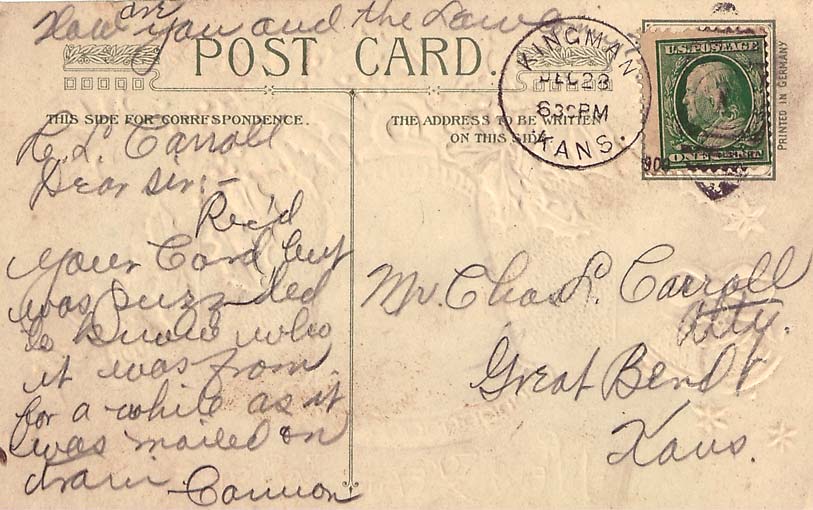 How are you and the Law
POST CARD.
THIS SIDE FOR CORRESPONDENCE.
C. L. Carroll
Dear Sir:-
Rec'd
your Card but
was puzzled
to know who
it was from
for a while as it
was mailed on
train - Cannon
THE ADDRESS TO BE WRITTEN
ON THIS SIDE
KINGMAN
DEC 23
630PM
KANS.
909
U.S. POSTAGE
ONE CENT
PRINTED IN GERMANY
Mr. Chas. L. Carroll
Atty.
Great Bend
Kans.